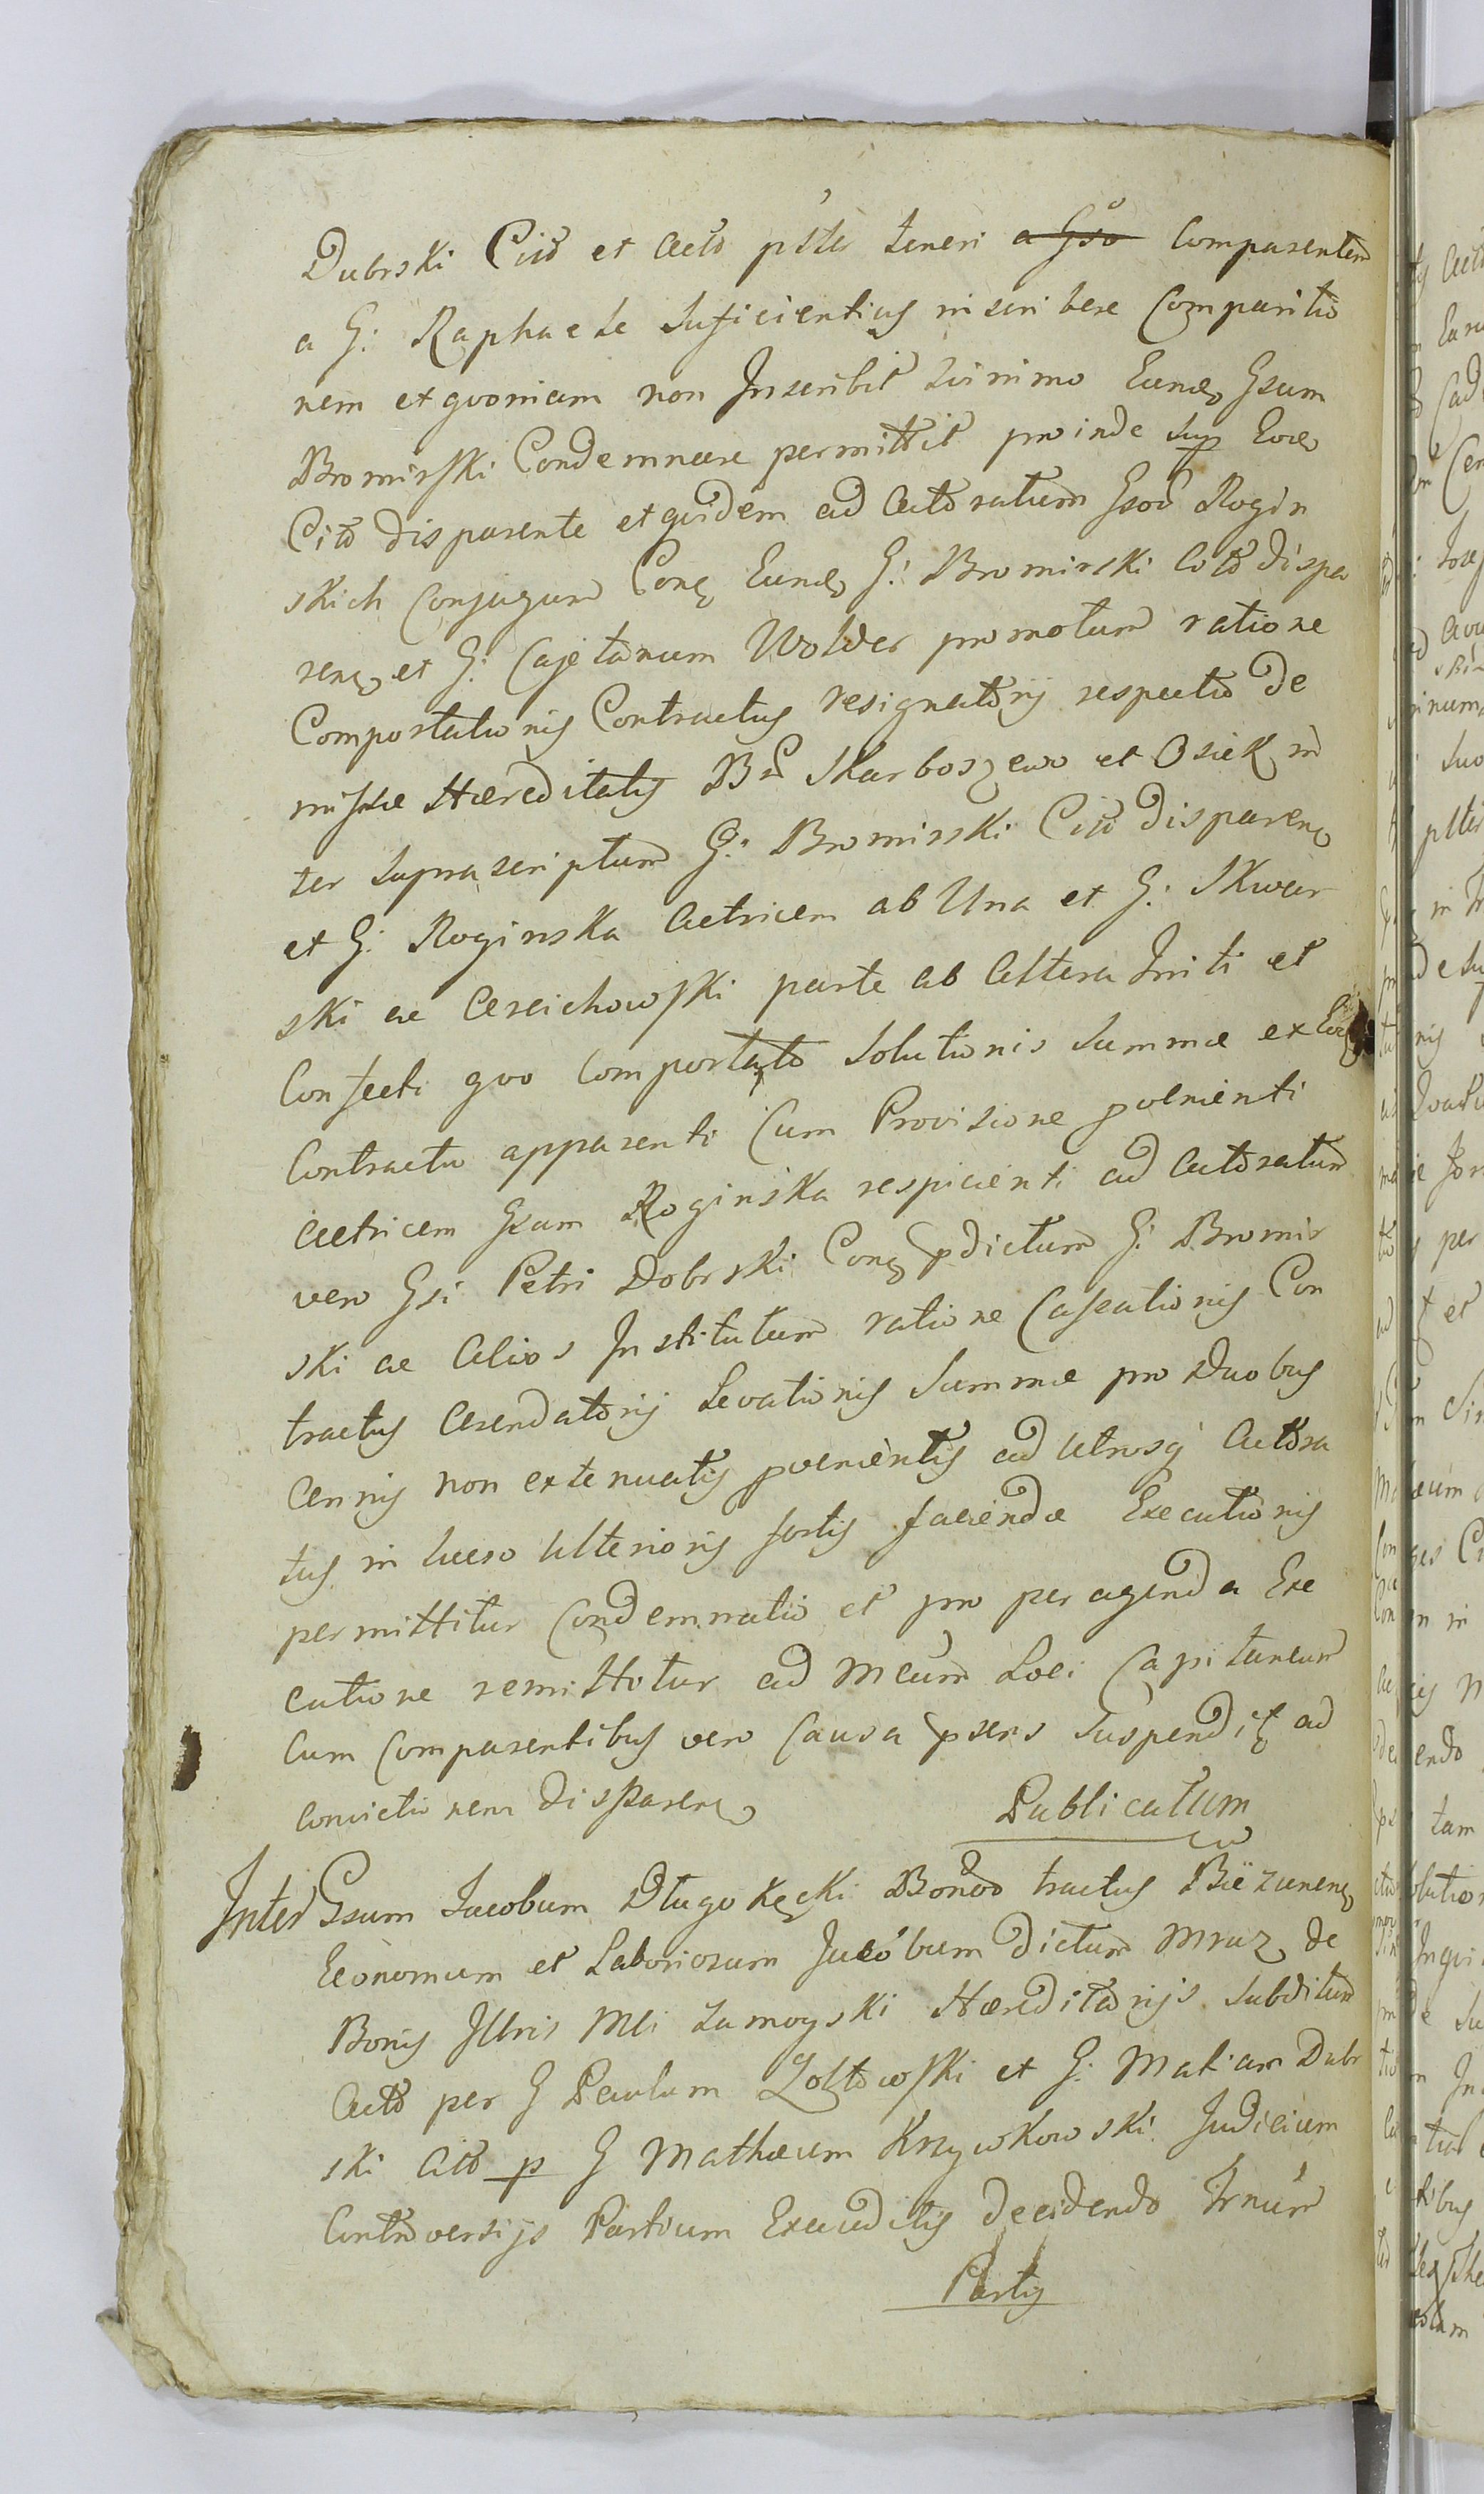 Dubrski Citõ et Actõ pñter teneri a Gso Comparentem
a G: Raphaele Suficientius inscribere Comparitio
nem et quoniam non Inscribit Siinimo Eund Gsum
Bromirski Condemnare permittit proinde Sup Eod
Citõ disparente et quidem ad Actõratum Gsoru Rogin
skich Conjugum Conq Eund G: Bromirski Citõ dispa
renq et G: Cajetanum Wolder promotum ratione
Comportationis Contractus resignatorij respectu de
missæ Hæreditatis Bn Skarboszewo et Osiek in
ter Suprascriptum G: Bromirski Citõ disparenq
et G: Roginska Actricem ab Una et G: Skwar
ski ac Czeichowski parte ab Altera Initi et
Confecti quo Comportato Solutionis Summæ ex Eod
Contractu apparenti Cum Provisione pvenienti
Actricem Gsam Roginska respicienti ad Actõratum
vero Gsi Petri Dobrski Conq pdictum G: Bromir
ski ac Alios Institutum ratione Cassationis Con
tractus Arendatorij Levationis Summæ pro Duobus
Annis non extenuatis pvenientis ad Utrosq Actõra
tus in lucro Ulterioris fortis faciendæ Executionis
permittitur Condemnatio et pro peragenda Exe
cutione remittitur ad Meum Loci Capitaneum
Cum Comparentibus vero Causa psens Suspenditur ad
Convictionem Disparenq
Publicatum
Inter Gsum Jacobum Długokęcki Bonoru tractus Bieżunenq
Economum et Laboriosum Jacobum dictum Mruz de
Bonis Illris Mli Zamoyski Hæreditarijs Subditum
Actõ per G Paulum Zołtowski et G: Matiam Dubr
ski Citõ p G Mathæum Krzywkowski Judicium
Controversijs Partium Exauditis Decidendo Trnum
Partis